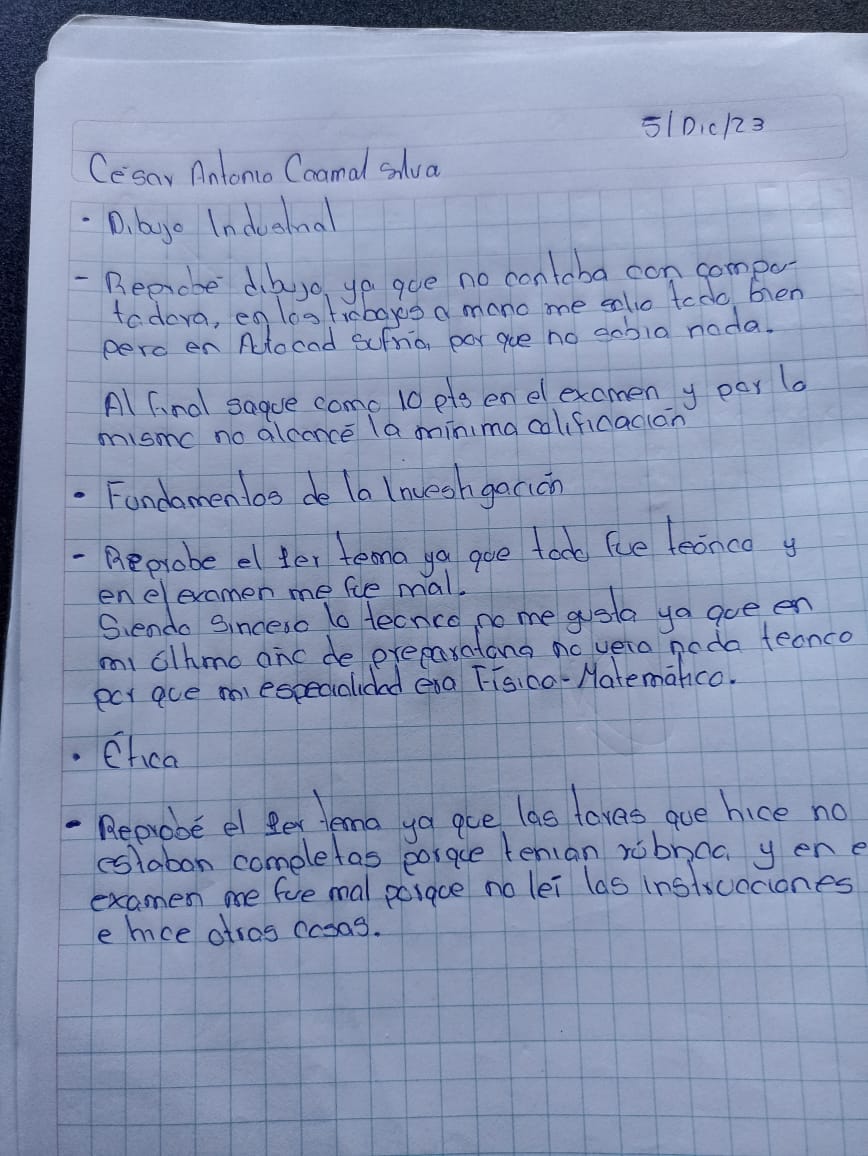 5/Dic/23
César Antonio Caamal Silva
· Dibujo Industrial
- Reprobé dibujo, ya que no contaba con compu-
tadora, en los trabajos a mano me salio todo bien
pero en Autocad sufria, por que no sabia nada.
Al final saque como 10 pts en el examen y por lo
mismo no alcancé la minima calificación
· Fundamentos de la Investigación
- Reprobe el 1er tema ya que todo fue teórico y
en el examen me fue mal.
Siendo sincero lo teorico no me gusta ya que en
mi último año de preparatoria no veia nada teorico
por que mi especialidad era Físico-Matemático.
· Ética
- Reprobé el 1er tema ya que las tareas que hice no
estaban completas porque tenian rúbrica, y en e
examen me fue mal porque no leí las instrucciones
e hice otras cosas.